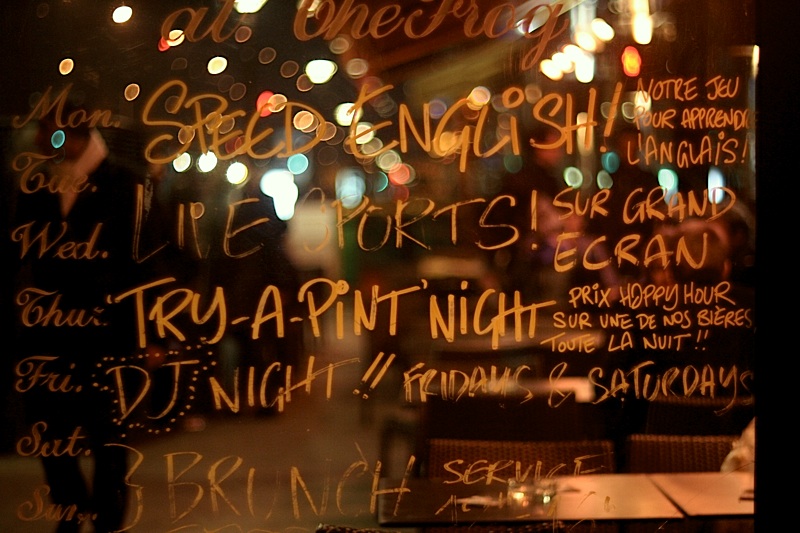 at The Frog
Mon. SPEED ENGLISH! NOTRE JEU
POUR APPRENDRE
L'ANGLAIS!
Tue.
Wed. LIVE SPORTS! SUR GRAND
ECRAN
Thur. 'TRY-A-PINT' NIGHT PRIX HOPPY HOUR
SUR UNE DE NOS BIÈRES
TOUTE LA NUIT!!
Fri. DJ NIGHT!! FRIDAYS & SATURDAYS
Sat.
Sun. } BRUNCH SERVICE